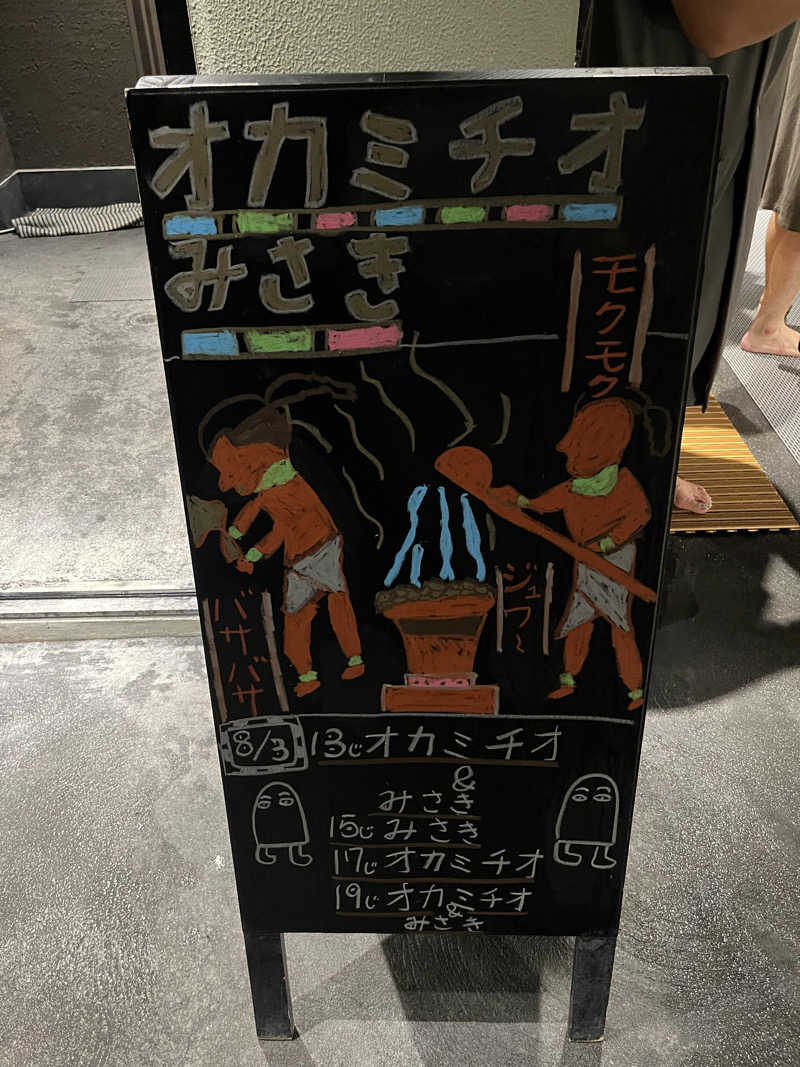 オカミチオ
みさき
モクモク
ジュワ〜
バサバサ
8/3 13じオカミチオ
&
みさき
15じみさき
17じオカミチオ
19じオカミチオ
&
みさき